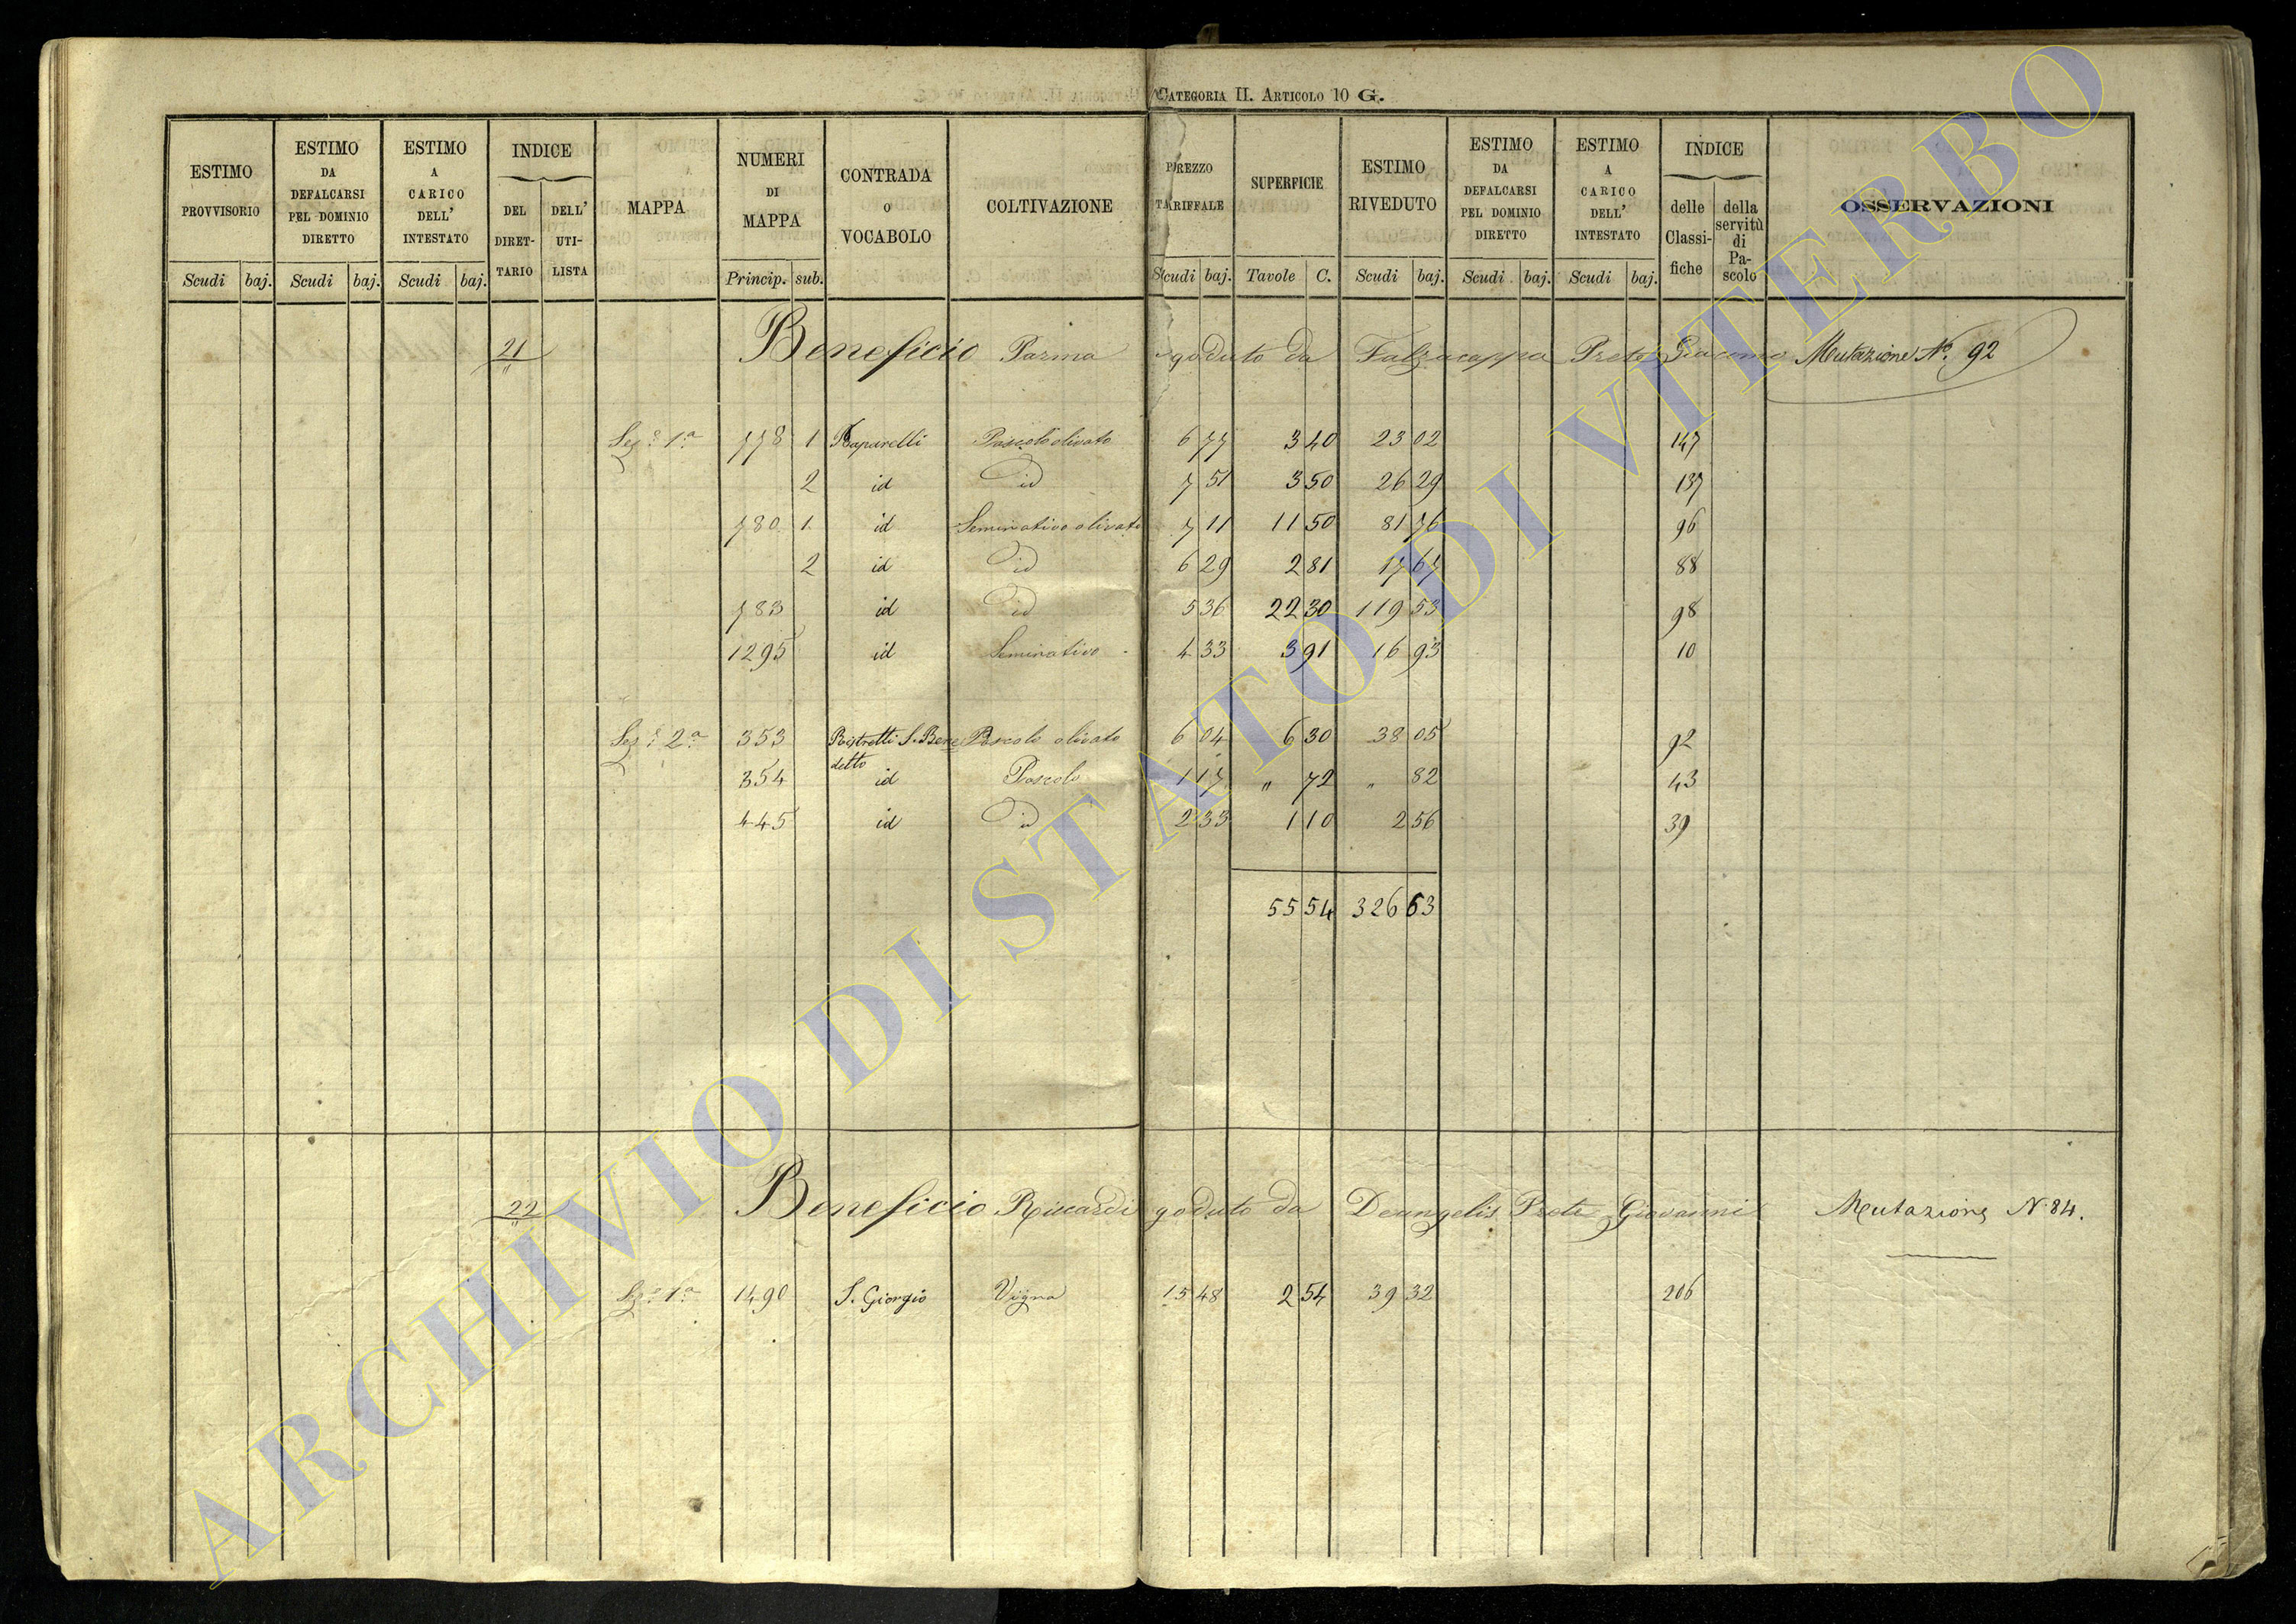 CATEGORIA II. ARTICOLO 10 G.
ESTIMO PROVVISORIO Scudi baj.
ESTIMO DA DEFALCARSI PEL DOMINIO DIRETTO Scudi baj.
ESTIMO A CARICO DELL' INTESTATO Scudi baj.
INDICE DEL DIRET-TARIO DELL' UTI-LISTA
MAPPA
NUMERI DI MAPPA Princip. sub.
CONTRADA O VOCABOLO
COLTIVAZIONE
PREZZO TARIFFALE Scudi baj.
SUPERFICIE Tavole C.
ESTIMO RIVEDUTO Scudi baj.
ESTIMO DA DEFALCARSI PEL DOMINIO DIRETTO Scudi baj.
ESTIMO A CARICO DELL' INTESTATO Scudi baj.
INDICE delle Classi-fiche della servitù di Pa-scolo
OSSERVAZIONI
21 Beneficio Parma goduto da Falzacappa Prete Giacomo Mutazione No. 92
Sez.e 1.a 778 1 Paparelli Pascolo olivato 6 77 3 40 23 02 147
2 id id 7 51 3 50 26 29 137
780 1 id Seminativo olivato 7 11 11 50 81 76 96
2 id id 6 29 2 81 17 67 88
783 id id 5 36 22 30 119 53 98
1295 id Seminativo 4 33 3 91 16 93 10
Sez.e 2.a 353 Ristretti S. Bene Pascolo olivato 6 04 6 30 38 05 92
detto
354 id Pascolo 1 17 " 72 " 82 43
445 id id 2 33 1 10 2 56 39
55 54 326 63
22 Beneficio Riccardi goduto da Deangelis Prete Giovanni Mutazione N. 84.
Sez.e 1.a 1490 S. Giorgio Vigna 15 48 2 54 39 32 206
ARCHIVIO DI STATO DI VITERBO